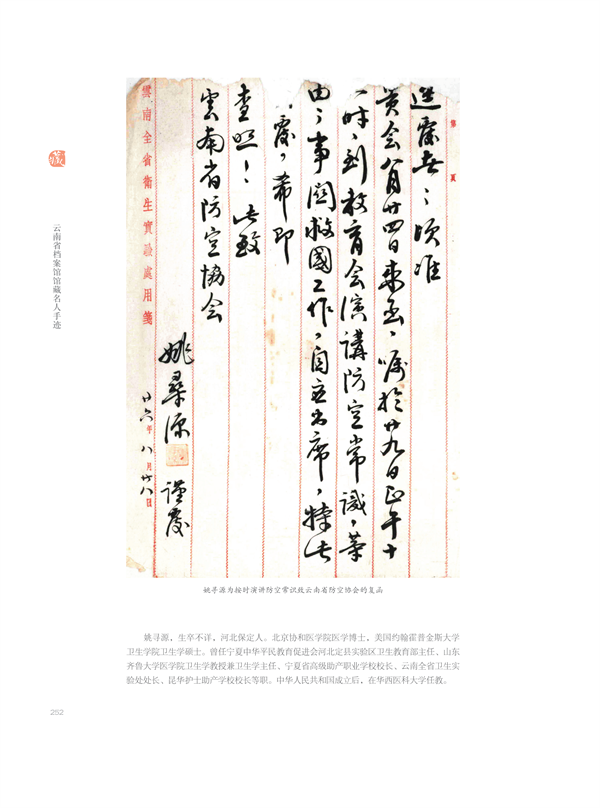 藏
云南省档案馆馆藏名人手迹
第 頁
逕覆者:頃准
貴会八月廿四日来函,嘱於廿九日正午十
一时,到教育会演講防空常識,等
由;事関救國工作,自应出席,特此
覆,希即
查照!此致
雲南省防空協会
姚尋源 謹覆
廿六年八月廿八日
雲南全省衛生實驗處用箋
姚寻源为按时演讲防空常识致云南省防空协会的复函
姚寻源,生卒不详,河北保定人。北京协和医学院医学博士,美国约翰霍普金斯大学
卫生学院卫生学硕士。曾任宁夏中华平民教育促进会河北定县实验区卫生教育部主任、山东
齐鲁大学医学院卫生学教授兼卫生学主任、宁夏省高级助产职业学校校长、云南全省卫生实
验处处长、昆华护士助产学校校长等职。中华人民共和国成立后,在华西医科大学任教。
252